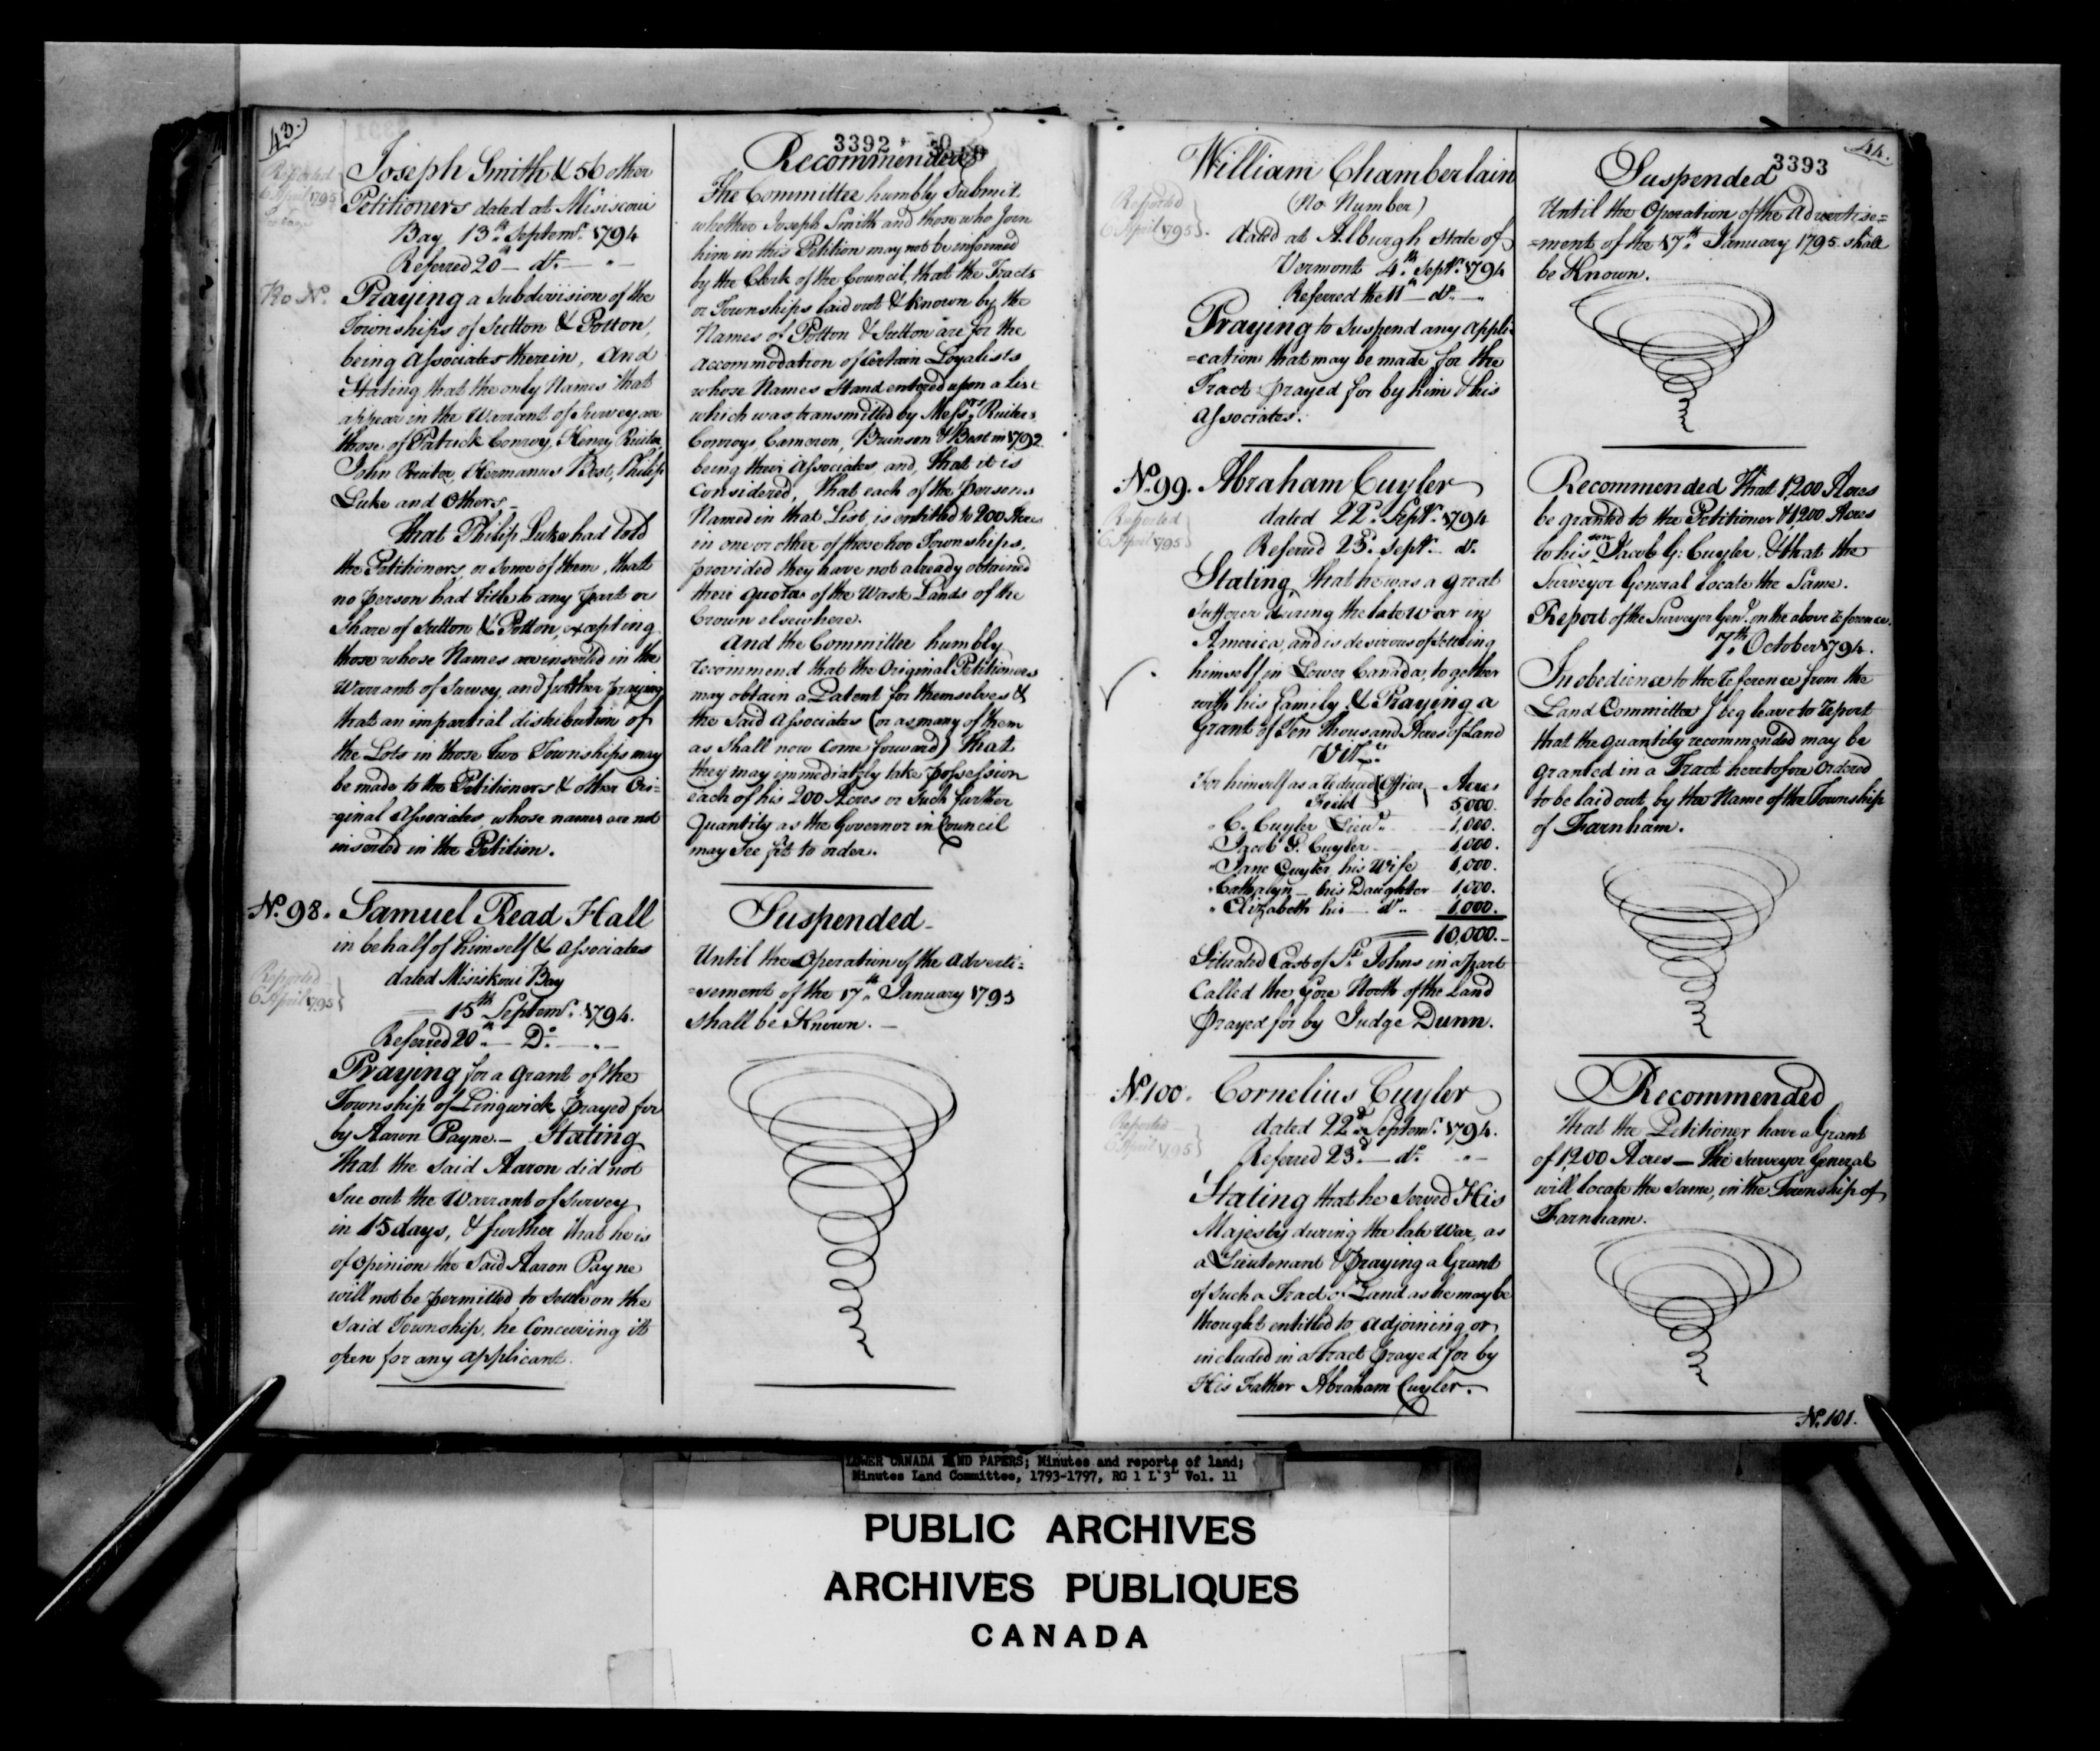 43.
3392
Reported
6 April 1795
Joseph Smith & 56 other
Petitioners dated at Misiscoui
Bay 13th Septemr. 1794
Referred 20th — do. — "
No No.
Praying a subdivision of the
Townships of Sutton & Potton,
being Associates therein, And
Stating that the only Names that
appear in the Warrant of Survey are
those of Patrick Conroy, Henry Ruiter,
John Ruiter, Hermanus Best, Philip
Luke and Others —
that Philip Luke had told
the Petitioners, or some of them, that
no person had title to any part or
share of Sutton & Potton, excepting
those whose Names are inserted in the
Warrant of Survey, and further praying
that an impartial distribution of
the Lots in those two Townships may
be made to the Petitioners & other Ori=
=ginal Associates, whose names are not
inserted in the Petition.
Recommended
The Committee humbly Submit
whether Joseph Smith and those who join
him in this Petition may not be informed
by the Clerk of the Council, that the Tracts
or Townships laid out & known by the
Names of Potton & Sutton are for the
accommodation of Certain Loyalists
whose Names Stand entered upon a List
which was transmitted by Messrs. Ruiter,
Conroy, Cameron, Brunson & Best in 1792.
being their Associates, and, that it is
Considered, that each of the persons
Named in that List, is entitled to 200 Acres
in one or other of those two Townships,
provided they have not already obtained
their quota of the Waste Lands of the
Crown elsewhere.
And the Committee humbly
recommend that the Original Petitioners
may obtain a Patent for themselves &
the said Associates (or as many of them
as shall now come forward) that
they may immediately take possession
each of his 200 Acres or such further
Quantity as the Governor in Council
may see fit to order.
No. 98. Samuel Read Hall
in behalf of himself & Associates
Reported
6 April 1795
dated Misiskoui Bay
15th Septemr. 1794.
Referred 20th — Do. — " —
Praying for a grant of the
Township of Lingwick prayed for
by Aaron Payne. — Stating
that the said Aaron did not
Sue out the Warrant of Survey
in 15 days, & further that he is
of opinion the Said Aaron Payne
will not be permitted to settle on the
said Township, he Conceiving it
open for any applicant.
Suspended —
Until the Operation of the Adverti=
=sement of the 17th January 1795
shall be Known. —
44.
3393
William Chamberlain
(No Number)
Reported
6 April 1795
dated at Alburgh State of
Vermont 4th Septr. 1794
Referred the 11th — do. — "
Praying to suspend any appli
=cation that may be made for the
Tract prayed for by him & his
Associates.
Suspended
Until the Operation of the Advertise=
=ment of the 17th January 1795 shall
be Known.
No. 99. Abraham Cuyler
Reported
6 April 1795
dated 22d. Septr. 1794
Referred 23d. Septr. — do.
Stating, that he was a great
sufferer during the late War in
America, and is desirous of settling
himself in Lower Canada, together
with his family, & Praying a
Grant of Ten thousand Acres of Land
Vizt.
For himself as a reduced Field Officer — Acres 5,000.
" C. Cuyler Lieut. — 1,000.
" Jacob G. Cuyler — 1,000.
" Jane Cuyler his Wife 1,000.
" Cathalyn — his Daughter — 1,000.
" Elizabeth his — do. — 1,000.
10,000. —
Situated East of St. Johns in a part
Called the Gore North of the Land
prayed for by Judge Dunn.
Recommended that 1,200 Acres
be granted to the Petitioner & 1,200 Acres
to his son Jacob G: Cuyler, & that the
Surveyor General locate the Same.
Report of the Surveyor Genl. on the above reference.
7th October 1794.
In obedience to the reference from the
Land Committee I beg leave to report
that the quantity recommended may be
granted in a Tract heretofore ordered
to be laid out by the Name of the Township
of Farnham.
No. 100. Cornelius Cuyler
Reported
6 April 1795
dated 22d Septemr. 1794.
Referred 23d. — do. " —
Stating that he Served His
Majesty during the late War, as
a Lieutenant & praying a Grant
of such a Tract of Land as he may be
thought entitled to adjoining or
included in a Tract prayed for by
His Father Abraham Cuyler.
Recommended
that the Petitioner have a Grant
of 1,200 Acres — The Surveyor General
will locate the same, in the Township of
Farnham.
No. 101.
LOWER CANADA LAND PAPERS; Minutes and reports of land;
Minutes Land Committee, 1793-1797, RG 1 L 3 Vol. 11
PUBLIC ARCHIVES
ARCHIVES PUBLIQUES
CANADA